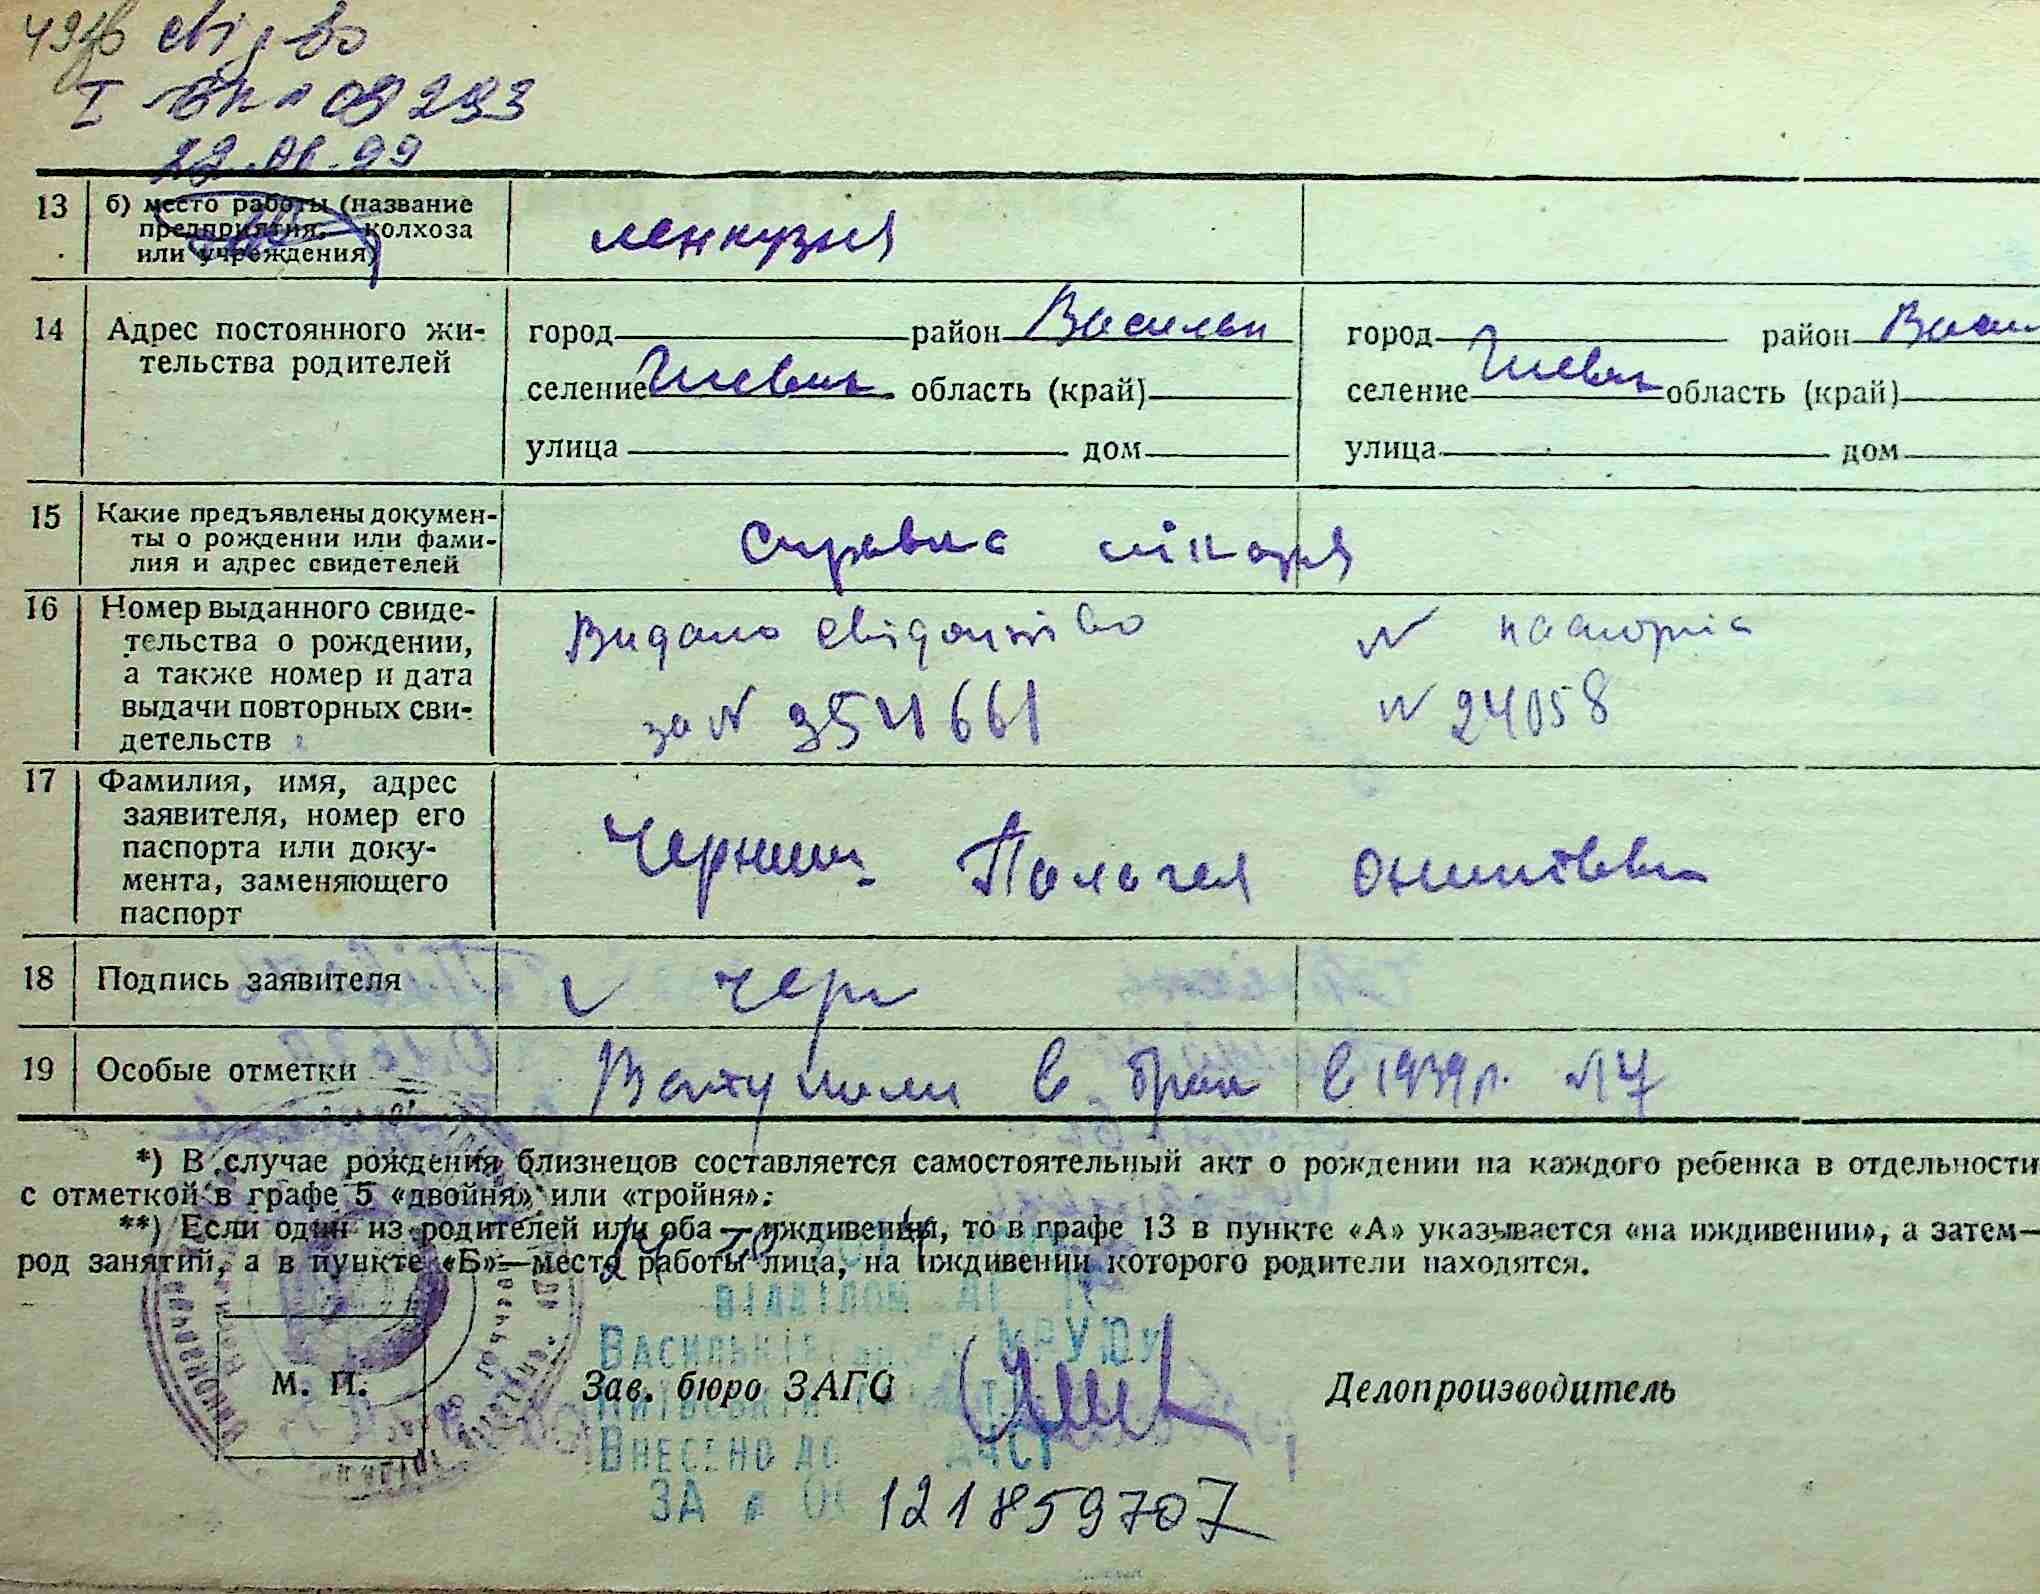 свідво
I БК № 09293
13 б) место работы (название
предприятия, колхоза
или учреждения)
14 Адрес постоянного жи-
тельства родителей
город район Васильк город район Васил
селение область (край) селение область (край)
улица дом улица дом
15 Какие предъявлены докумен-
ты о рождении или фами-
лия и адрес свидетелей
Справка лікаря
16 Номер выданного свиде-
тельства о рождении,
а также номер и дата
выдачи повторных сви-
детельств
Видано свідоцтво № паспорта
за № 354661 № 24058
17 Фамилия, имя, адрес
заявителя, номер его
паспорта или доку-
мента, заменяющего
паспорт
Черниш Палагея
18 Подпись заявителя
Чер
19 Особые отметки
Вступили в брак в 1939 г. № 7
*) В случае рождения близнецов составляется самостоятельный акт о рождении на каждого ребенка в отдельности
с отметкой в графе 5 «двойня» или «тройня».
**) Если один из родителей или оба — иждивенцы, то в графе 13 в пункте «А» указывается «на иждивении», а затем—
род занятий, а в пункте «Б»—место работы лица, на иждивении которого родители находятся.
М. П. Зав. бюро ЗАГС Делопроизводитель
Внесено до ДРАЦСГ
за № 00121859707